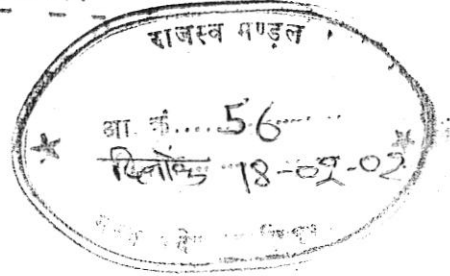 राजस्व मण्डल
आ. क्रं..... 56 ......
दिनांक ...... 18-02-02